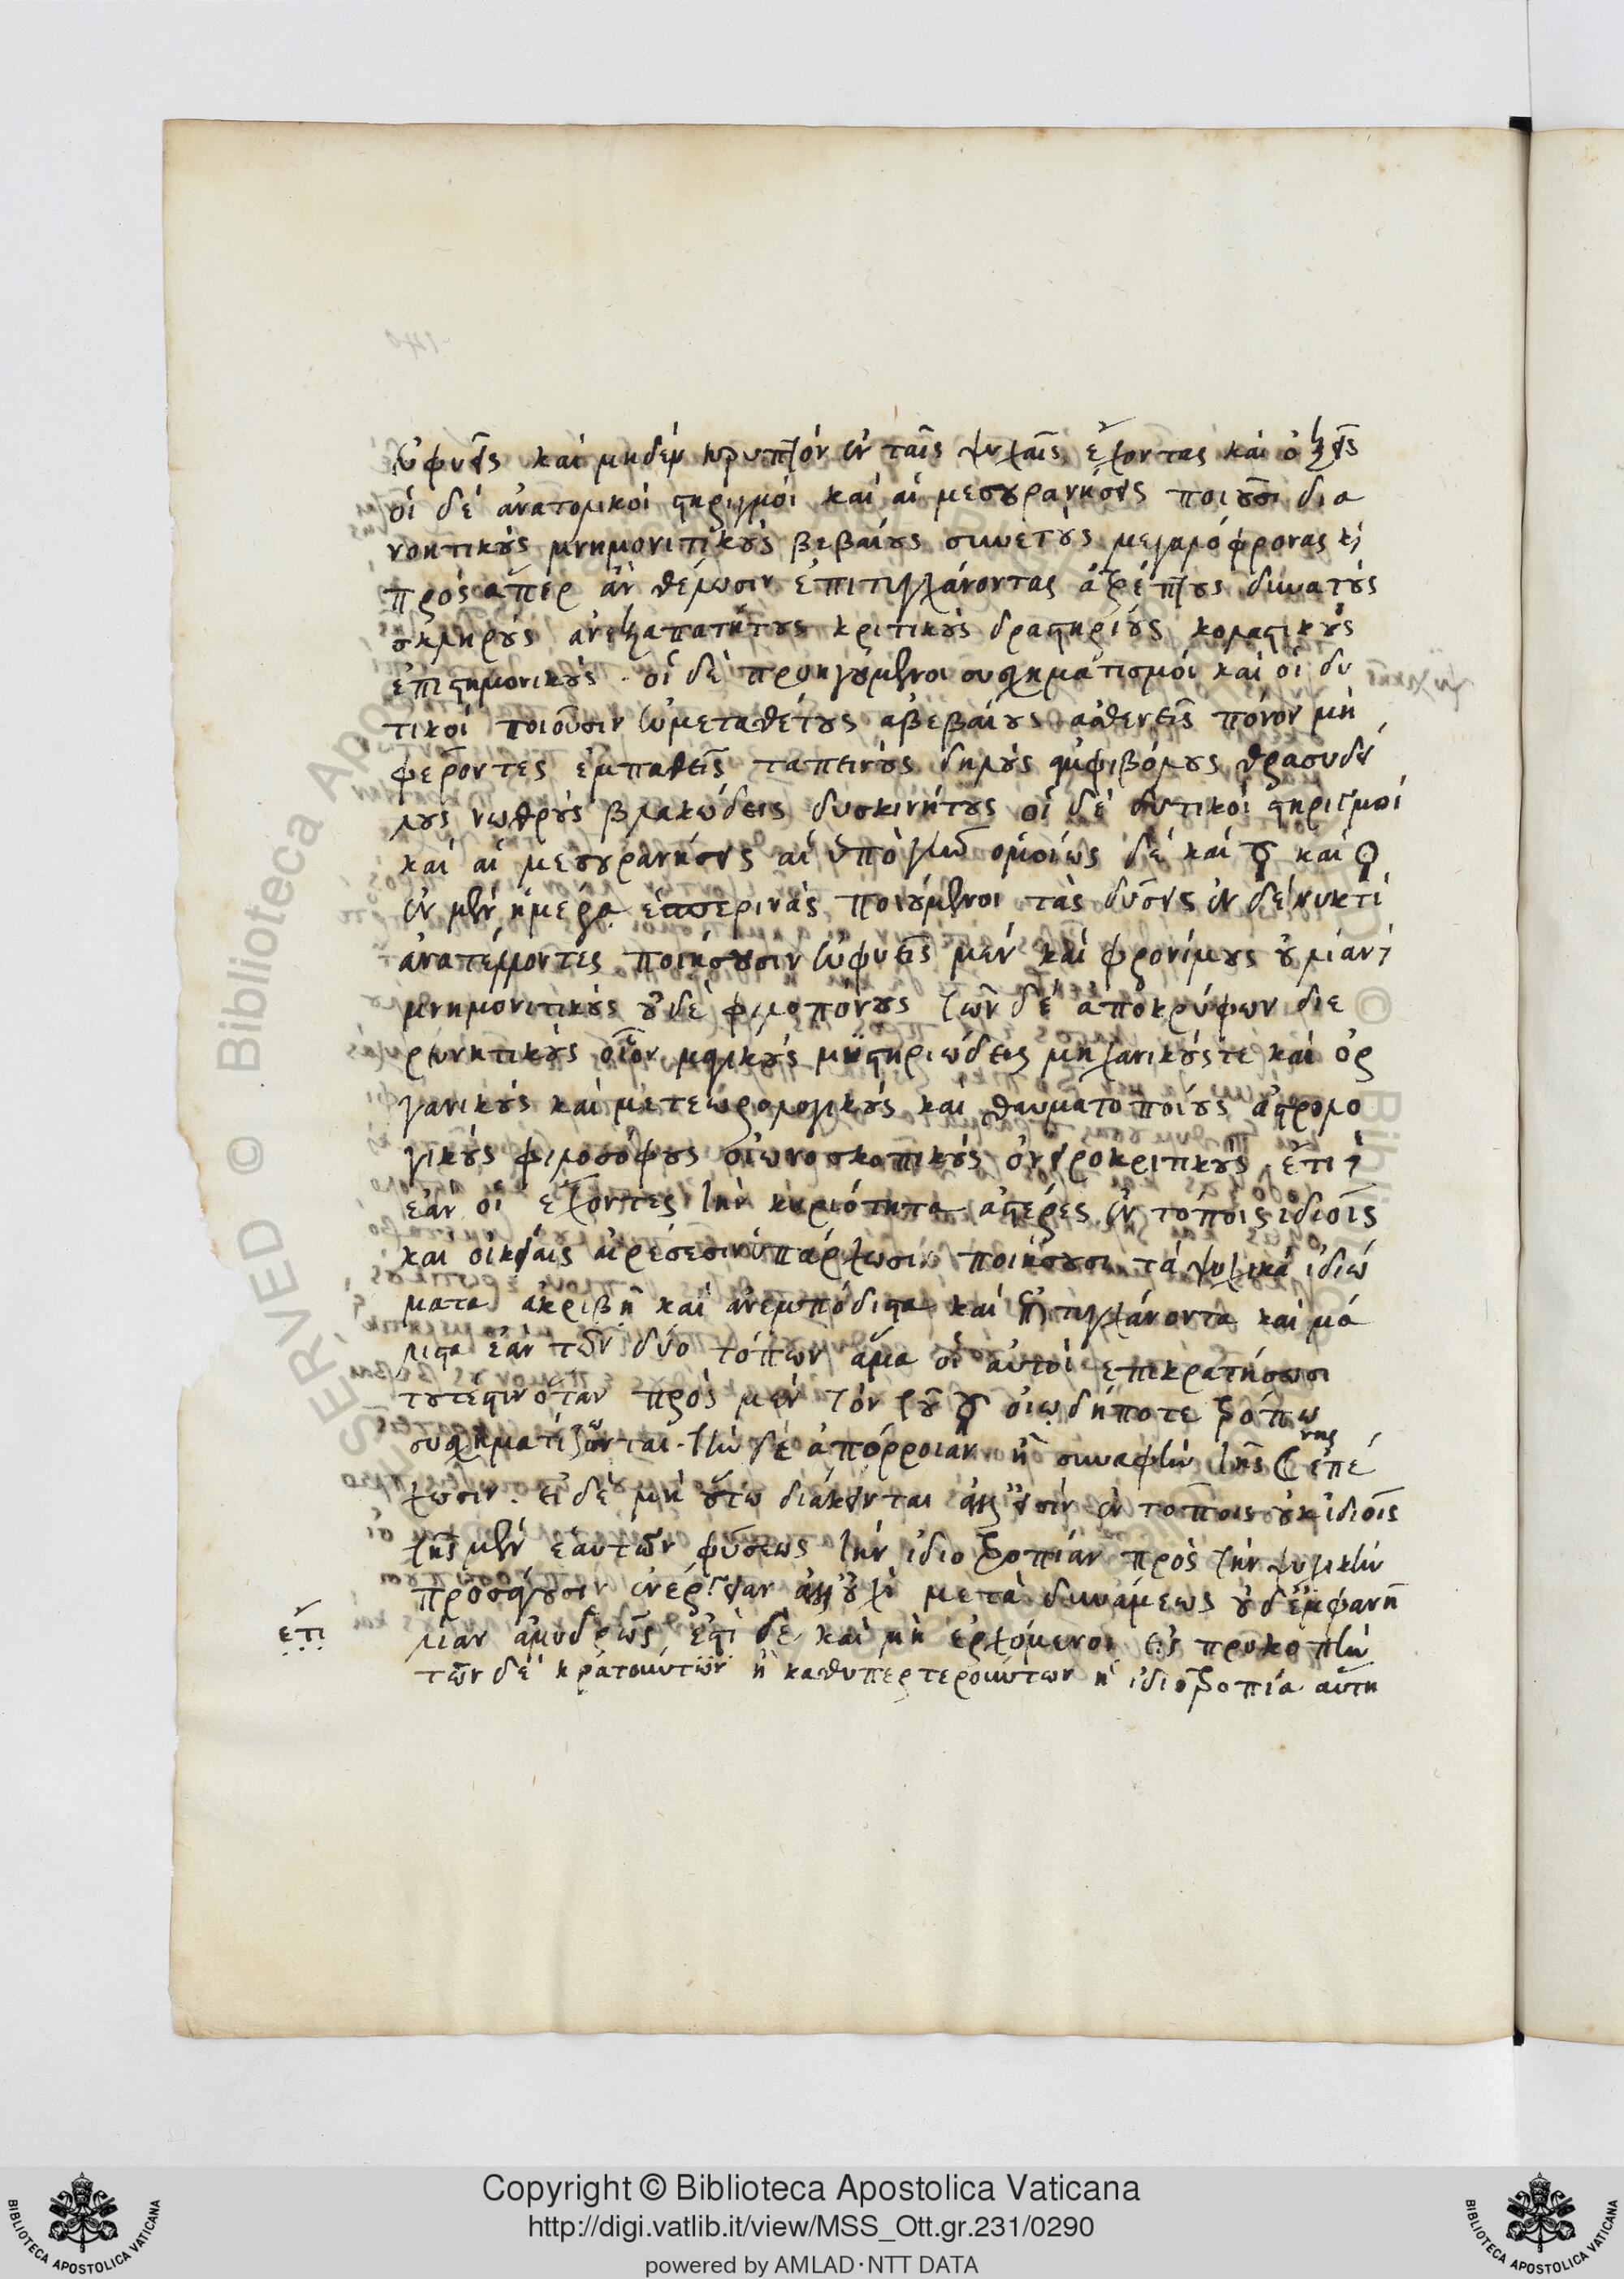 εὐφυεῖς καὶ μηδὲν κρυπτὸν ἐν ταῖς ψυχαῖς ἔχοντας καὶ ὀξεῖς
οἱ δὲ ἀνατολικοὶ στηριγμοὶ καὶ αἱ μεσουρανήσεις ποιοῦσι δια
νοητικοὺς μνημονιτικοὺς βεβαίους συνετοὺς μεγαλόφρονας καὶ
πρὸς ἅπερ ἂν θέλωσιν ἐπιτυγχάνοντας ἀτρέπτους δυνατοὺς
σκληροὺς ἀνεξαπατήτους κριτικοὺς δραστηρίους κολαστικοὺς
ἐπιστημονικοὺς. οἱ δὲ προηγούμενοι συσχηματισμοὶ καὶ οἱ δυ
τικοὶ ποιοῦσιν εὐμεταθέτους ἀβεβαίους ἀσθενεῖς πόνον μὴ
φέροντες ἐμπαθεῖς ταπεινοὺς δηλοὺς ἀμφιβόλους θρασυδεί
λους νωθροὺς βλακώδεις δυσκινήτους οἱ δὲ δυτικοὶ στηριγμοὶ
καὶ αἱ μεσουρανήσεις αἱ ὑπὸ γῆν ὁμοίως δὲ καὶ ☿ καὶ ♀
ἐν μὲν ἡμέρᾳ ἑσπερινὰς ποιούμενοι τὰς δύσεις ἐν δὲ νυκτὶ
ἀνατέλλοντες ποιήσουσιν εὐφυεῖς μὲν καὶ φρονίμους οὐ λίαν
μνημονιτικοὺς οὐδὲ φιλοπόνους τῶν δὲ ἀποκρύφων διε
ρευνητικοὺς οἷον μαγικοὺς μυστηριώδεις μηχανικούς τε καὶ ὀρ
γανικοὺς καὶ μετεωρολογικοὺς καὶ θαυματοποιοὺς ἀστρολο
γικοὺς φιλοσόφους οἰωνοσκοπικοὺς ὀνειροκριτικοὺς ἔτι
ἐὰν οἱ ἔχοντες τὴν κυριότητα ἀστέρες ἐν τόποις ἰδίοις
καὶ οἰκείαις αἱρέσεσιν ὑπάρχωσι ποιήσουσι τὰ ψυχικὰ ἰδιώ
ματα ἀκριβῆ καὶ ἀνεμπόδιστα καὶ ἐπιτυγχάνοντα καὶ μά
λιστα ἐὰν τῶν δύο τόπων ἅμα οἱ αὐτοὶ ἐπικρατήσωσι
τουτέστιν ὅταν πρὸς μὲν τὸν τοῦ ☿ οἱῳδήποτε τρόπῳ
συσχηματίζονται. τὴν δὲ ἀπόρροιαν ἢ συναφὴν τῆς ☾νης ἐπέ
χωσιν. εἰ δὲ μὴ οὕτω διάκεινται ἀλλ' εἰσὶν ἐν τόποις οὐκ ἰδίοις
τῆς μὲν ἑαυτῶν φύσεως τὴν ἰδιοτροπίαν πρὸς τὴν ψυχικὴν
προσάγουσιν ἐνέργειαν ἀλλ' οὐχὶ μετὰ δυνάμεως οὐδ' ἐμφανῆ
ἔτι λίαν ἀμυδρῶς ἔτι δὲ καὶ μὴ ἐρχόμενοι εἰς προκοπὴν
τῶν δὲ κρατούντων ἢ καθυπερτερούντων ἡ ἰδιοτροπία αὕτη
Copyright © Biblioteca Apostolica Vaticana
http://digi.vatlib.it/view/MSS_Ott.gr.231/0290
powered by AMLAD·NTT DATA